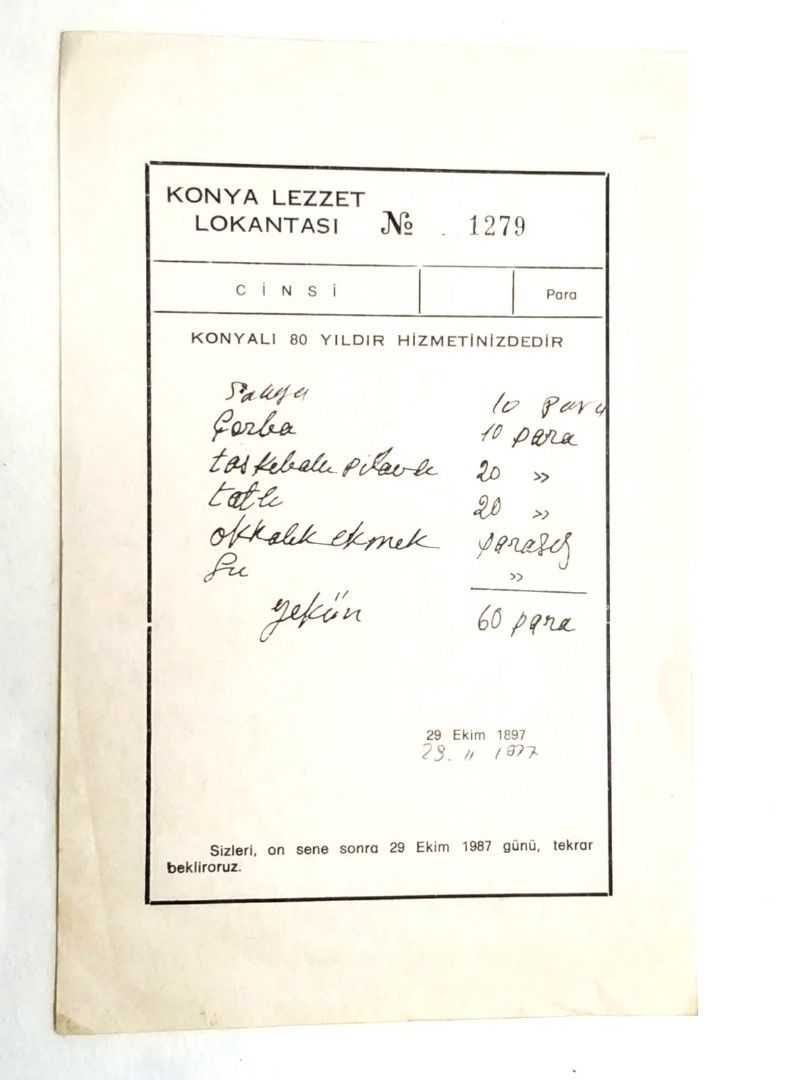 KONYA LEZZET
LOKANTASI № 1279
CİNSİ Para
KONYALI 80 YILDIR HİZMETİNİZDEDİR
10 para
Çorba 10 para
taskebabı pilavlı 20 »
tatlı 20 »
okkalık ekmek parasız
Su »
yekün 60 para
29 Ekim 1897
29. 11 1977
Sizleri, on sene sonra 29 Ekim 1987 günü, tekrar
bekliroruz.